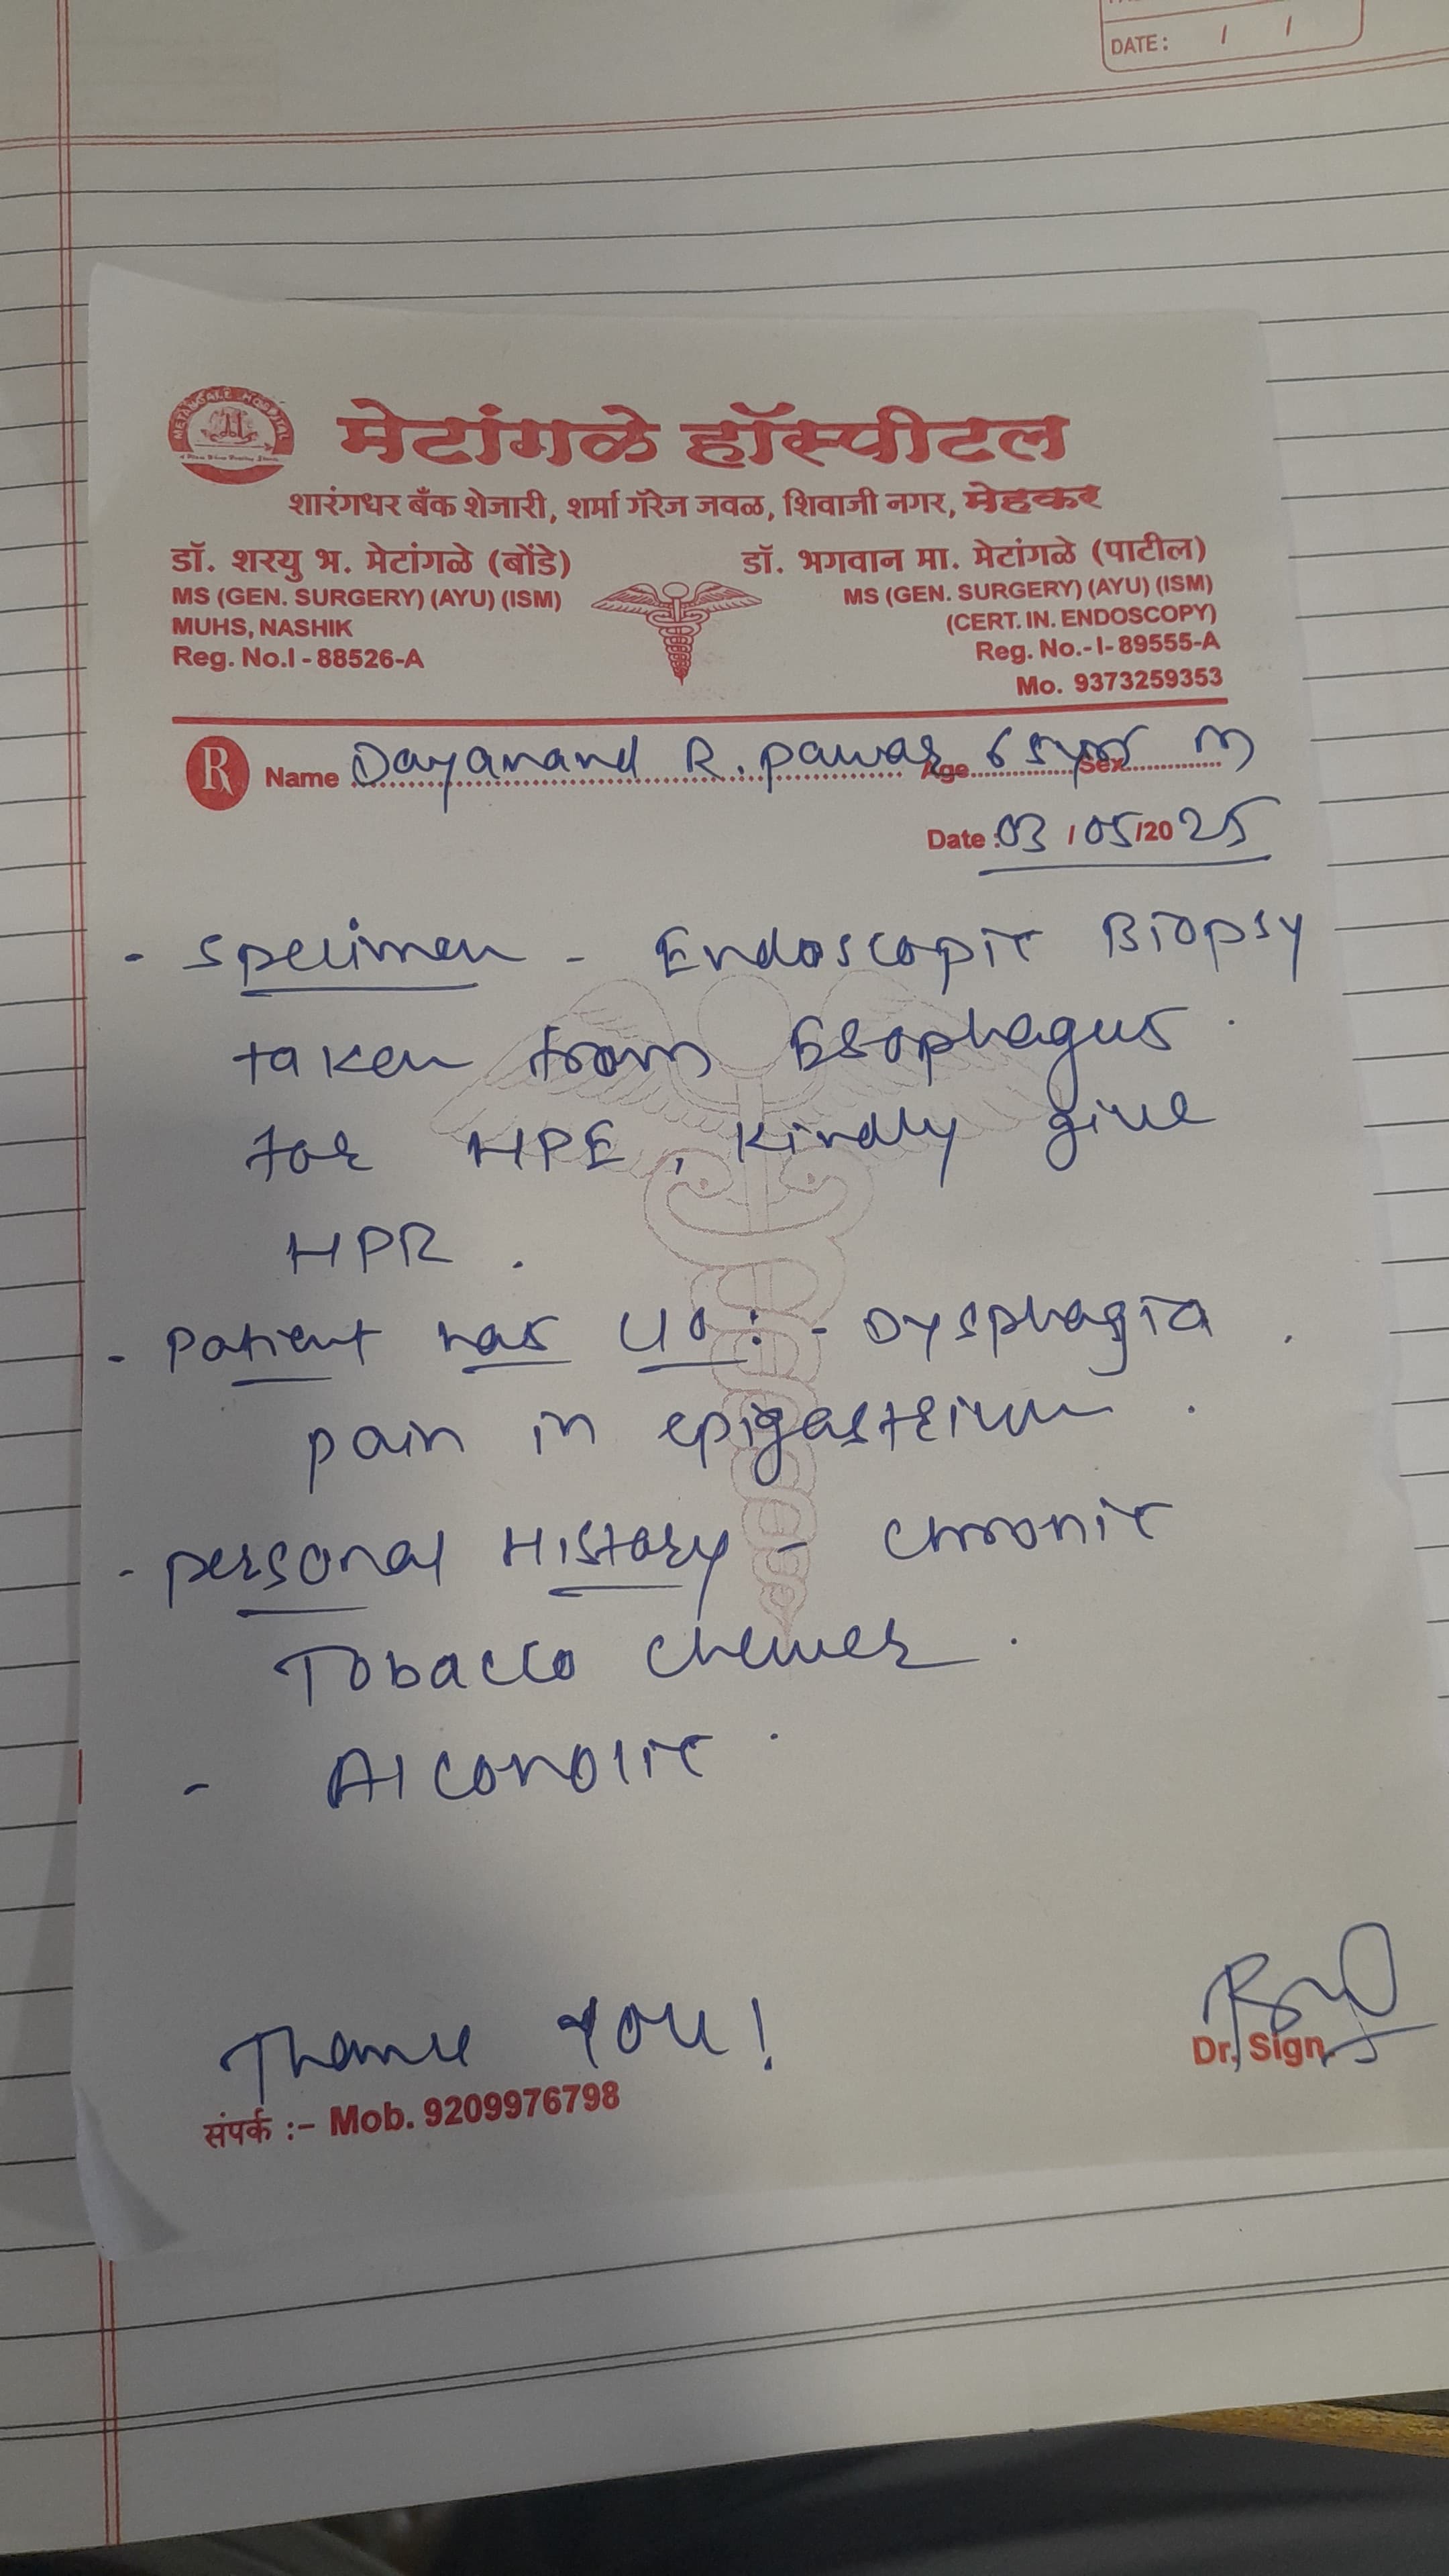 DATE: / /
METANGALE HOSPITAL
मेटांगळे हॉस्पीटल
शारंगधर बँक शेजारी, शर्मा गॅरेज जवळ, शिवाजी नगर, मेहकर
डॉ. शरयु भ. मेटांगळे (बोंडे)
MS (GEN. SURGERY) (AYU) (ISM)
MUHS, NASHIK
Reg. No.I - 88526-A
डॉ. भगवान मा. मेटांगळे (पाटील)
MS (GEN. SURGERY) (AYU) (ISM)
(CERT. IN. ENDOSCOPY)
Reg. No.- I- 89555-A
Mo. 9373259353
R Name Dayanand R. Pawar Age 65yrs Sex M
Date : 03 / 05 /20 25
- Specimen - Endoscopic Biopsy
taken from Esophagus.
for HPE, kindly give
HPR.
- Patient has C/O :- Dysphagia.
pain in epigastrium.
- Personal History - chronic
Tobacco chewer.
- Alcoholic.
Thank You!
Dr. Sign.
संपर्क :- Mob. 9209976798